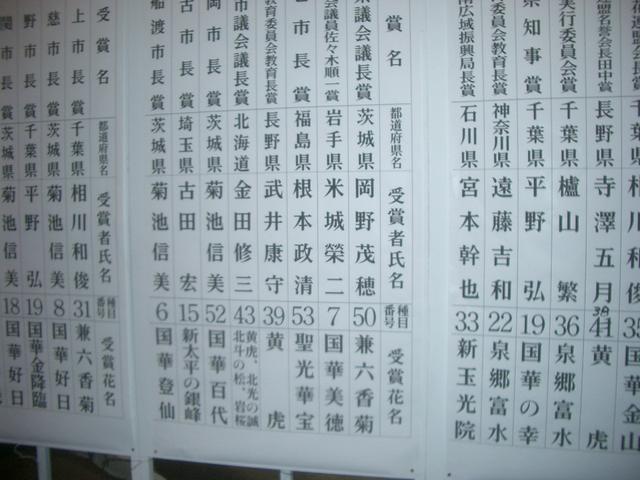 盟名誉会長田中賞 長野県 寺澤五月 41 39 黄虎
実行委員会賞 千葉県 櫨山繁 36 泉郷富水
県知事賞 千葉県 平野弘 19 国華の幸
委員会教育長賞 神奈川県 遠藤吉和 22 泉郷富水
南広域振興局長賞 石川県 宮本幹也 33 新玉光院
賞名 都道府県名 受賞者氏名 種目番号 受賞花名
議会議長賞 茨城県 岡野茂穂 50 兼六香菊
会議員佐々木順一賞 岩手県 米城榮二 7 国華美徳
市長賞 福島県 根本政清 53 聖光華宝
委員会教育長賞 長野県 武井康守 39 黄虎
市議会議長賞 北海道 金田修三 43 黄虎、北光の誠 北斗の松、岩桜
市長賞 茨城県 菊池信美 52 国華百代
古市長賞 埼玉県 古田宏 15 新太平の銀峰
船渡市長賞 茨城県 菊池信美 6 国華登仙
受賞名 都道府県名 受賞者氏名 種目番号 受賞花名
上市長賞 千葉県 相川和俊 31 兼六香菊
慈市長賞 茨城県 菊池信美 8 国華好日
野市長賞 千葉県 平野弘 19 国華金降臨
関市長賞 茨城県 菊池信美 18 国華好日